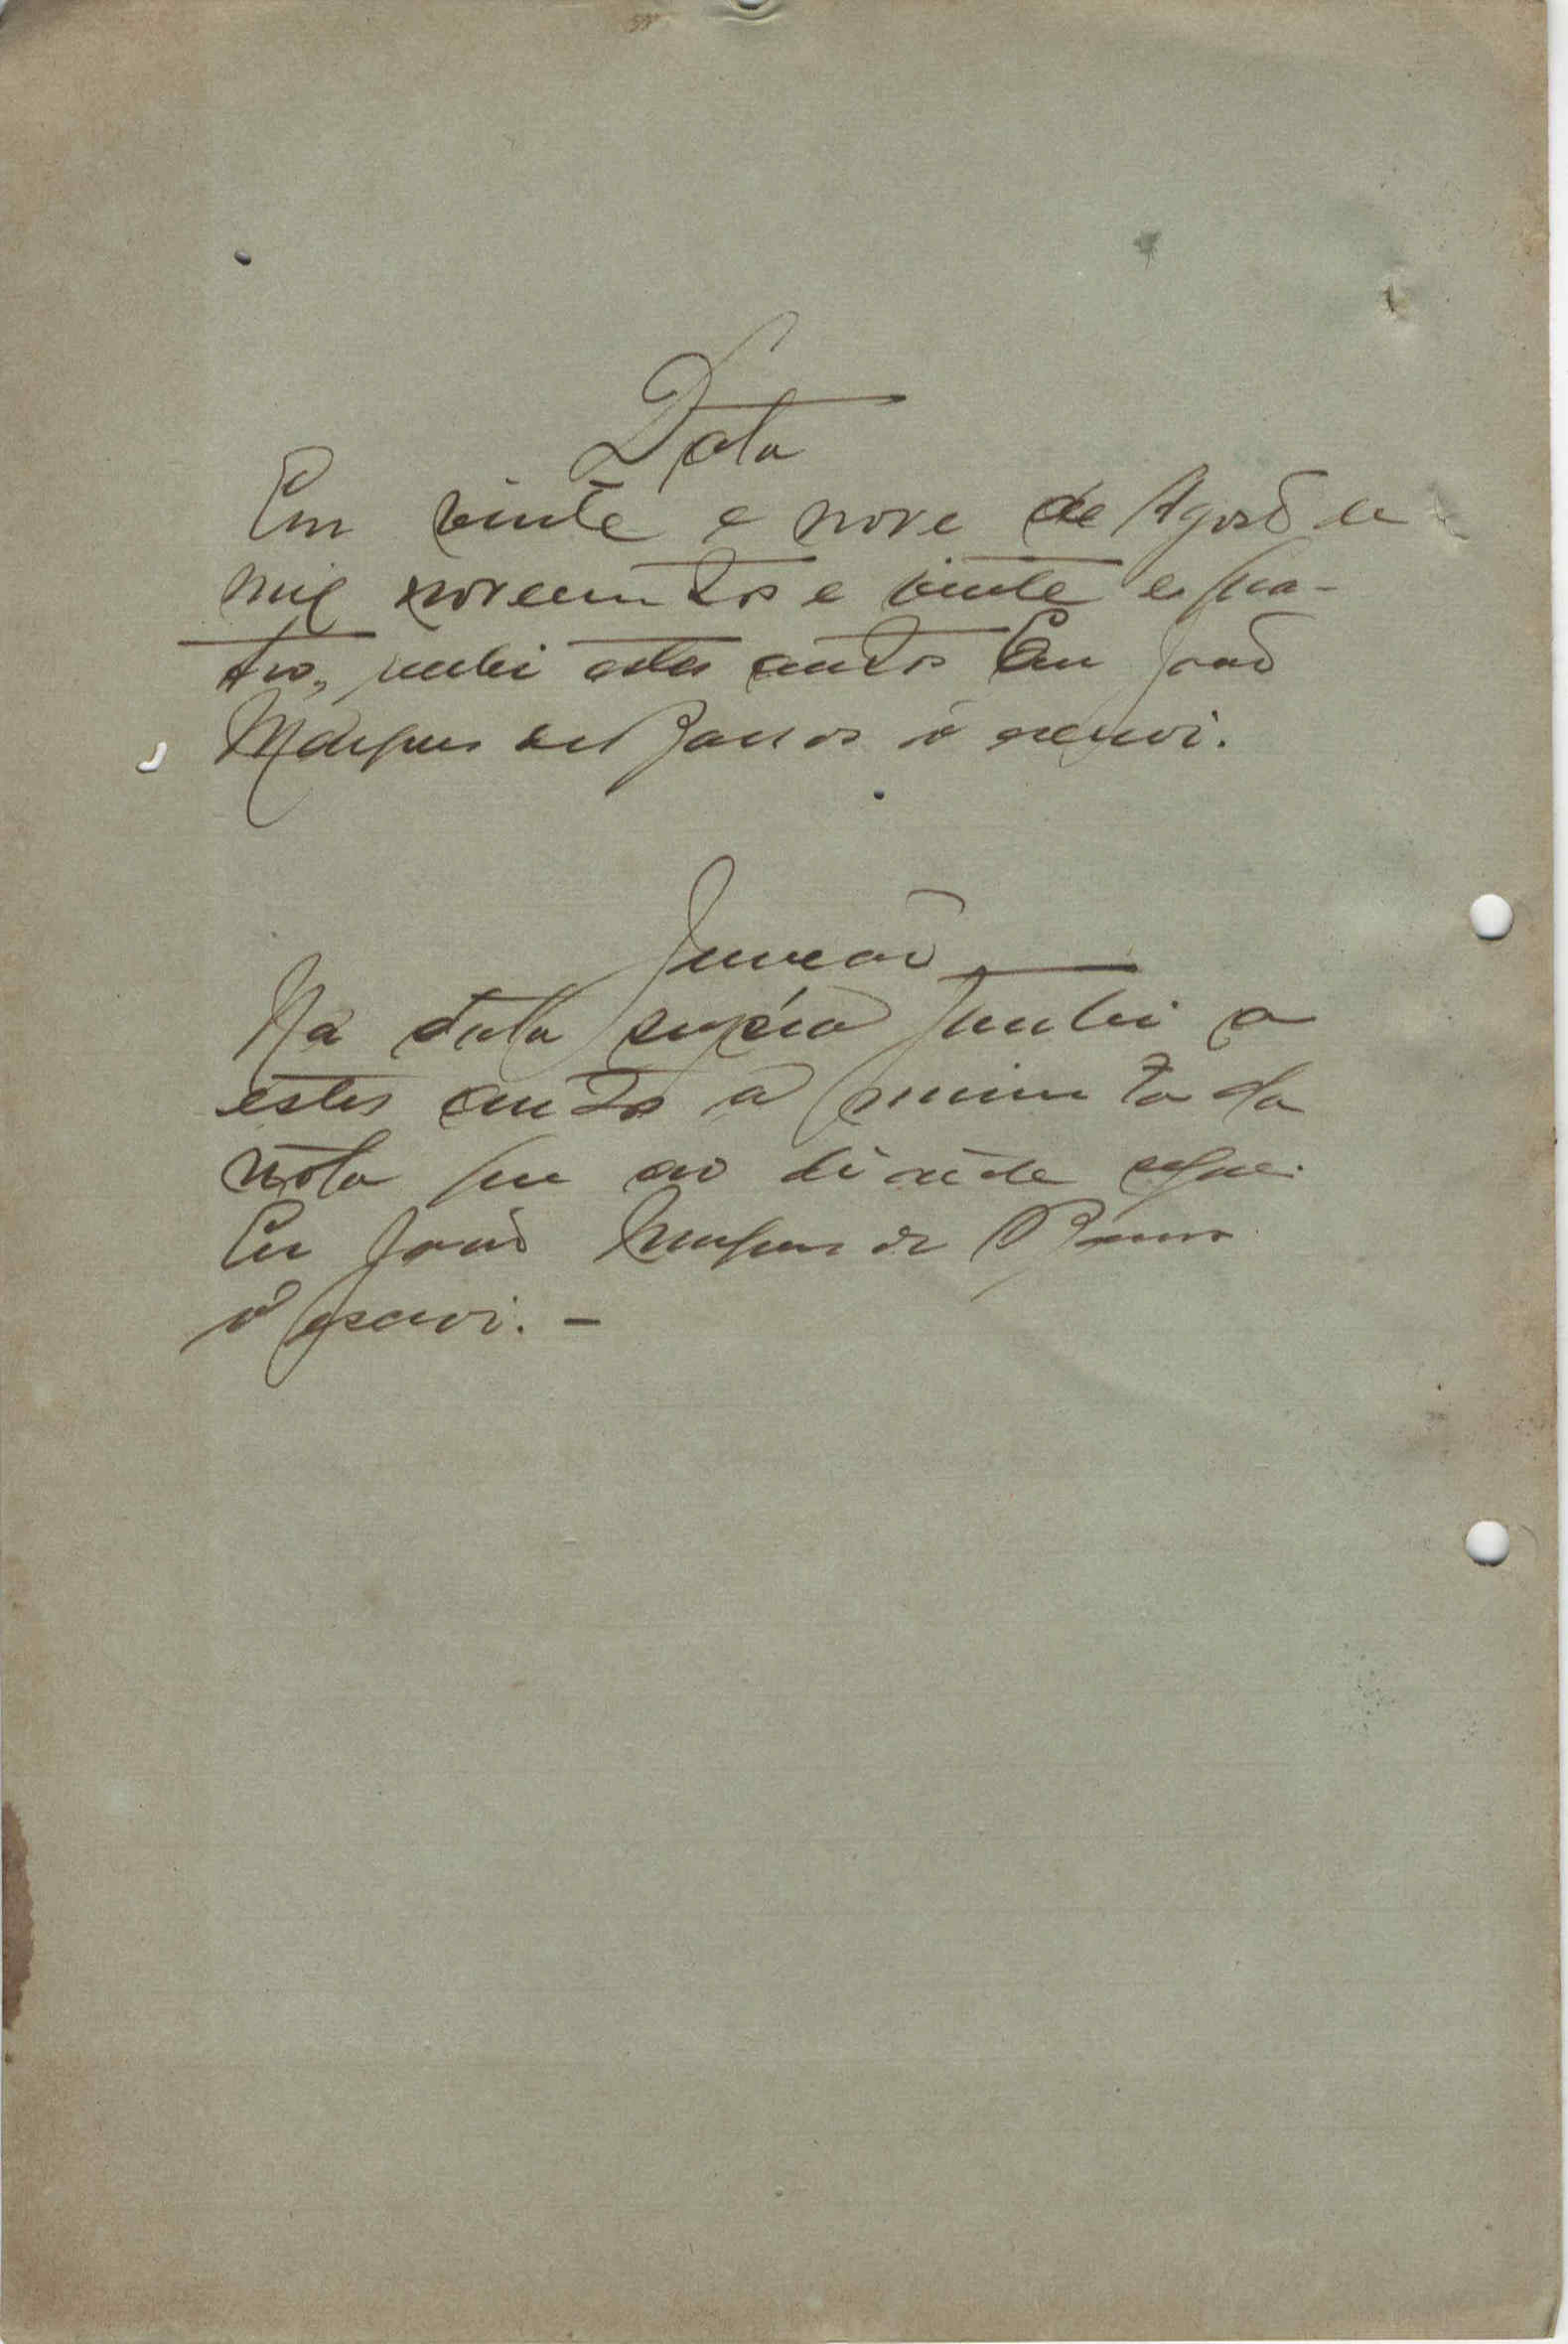 Data
Em vinte e nove de Agosto de
mil novecentos e vinte e qua-
tro, recebi estes autos Eu João
Marques de Barros o escrevi.
Juncção
Na data supra juntei a
estes autos a minuta da
nota que ao diante segue.
Eu João Marques de Barros
o escrevi. -